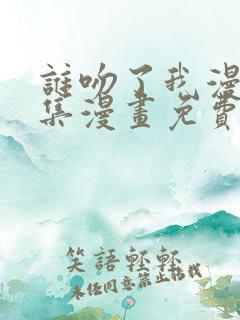 誰吻了我漫
集漫畫免費
笑語輕輕
未任同意禁止轉載